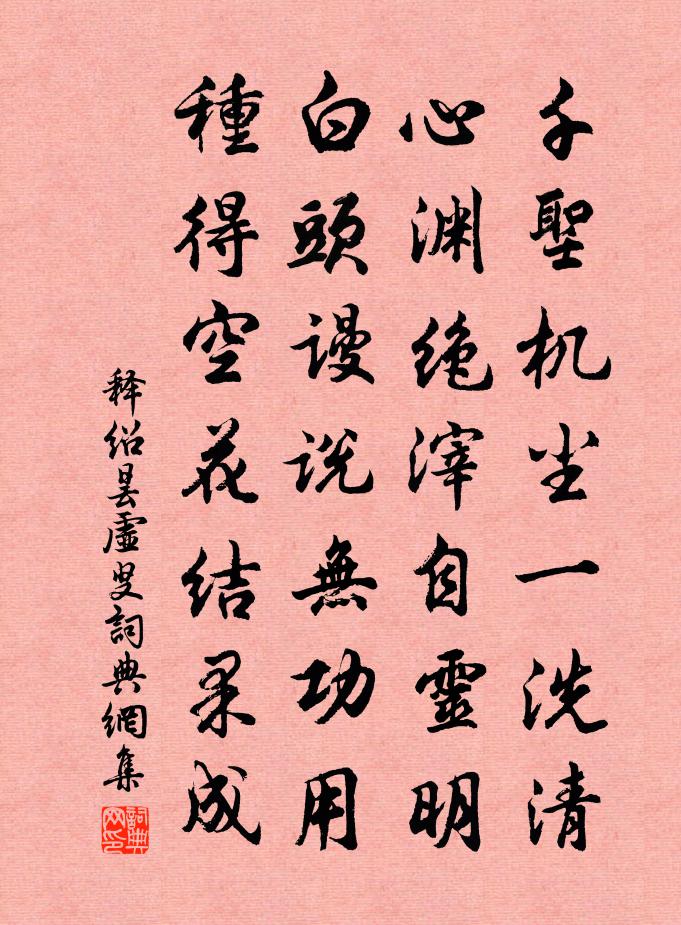 千聖机尘一洗清
心渊绝滓自靈明
白頭谩说無功用
種得空花结果成
释绍昙虚叟詞典網集
詞典网印